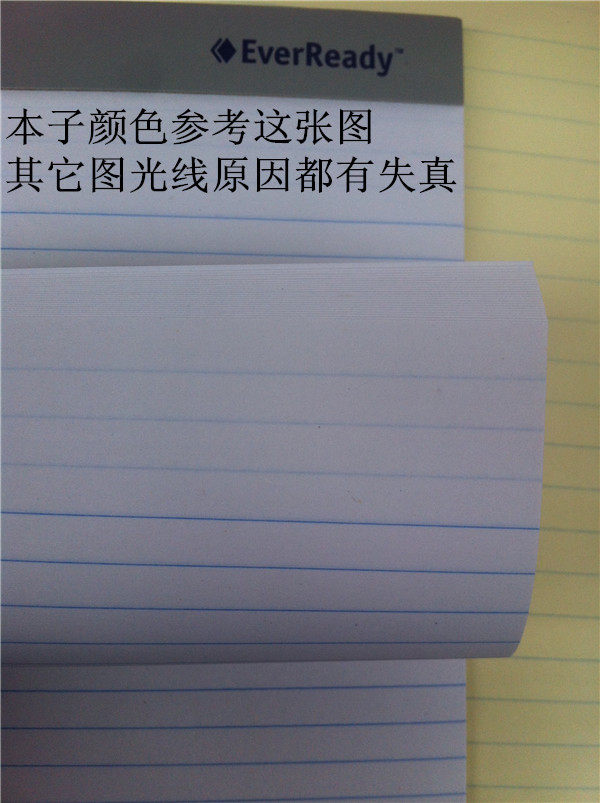 EverReady™
本子颜色参考这张图
其它图光线原因都有失真